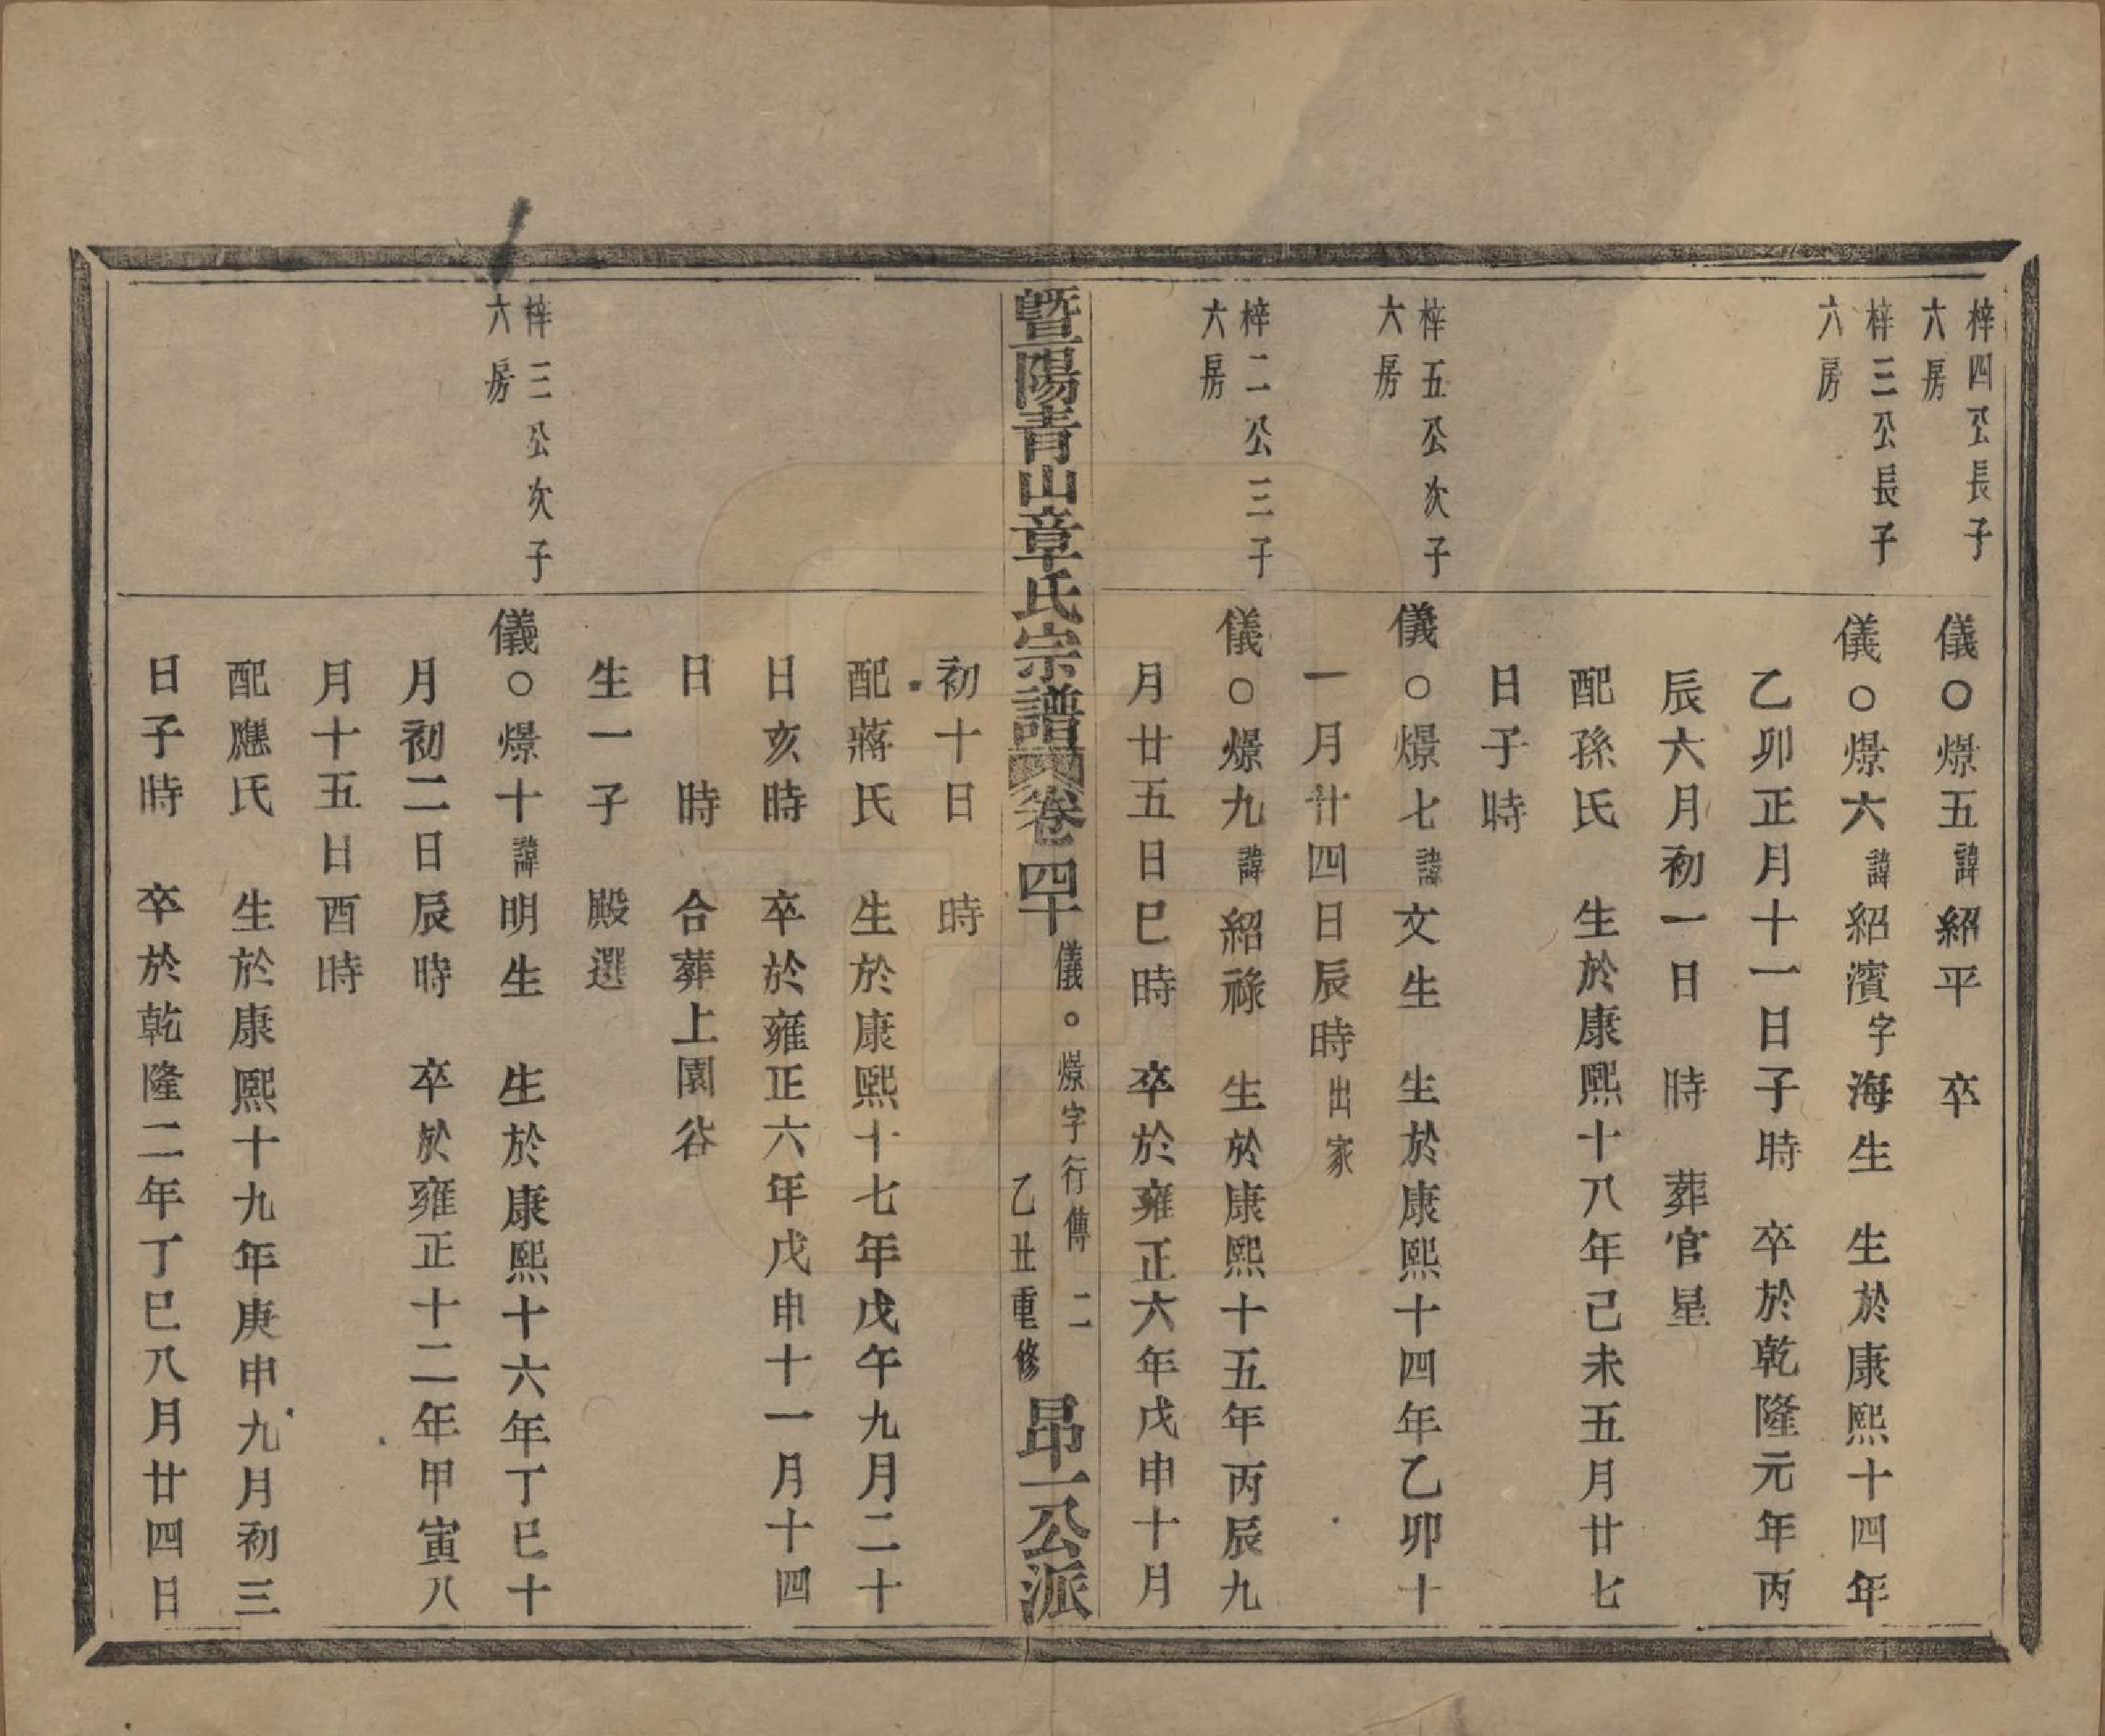 梓四公長子
六房
儀○熼五諱紹平　卒
梓三公長子
六房
儀○熼六諱紹濱字海生　生於康熙十四年
乙卯正月十一日子時　卒於乾隆元年丙
辰六月初一日　時　葬官星
配孫氏　生於康熙十八年己未五月廿七
日子時
梓五公次子
六房
儀○熼七諱文生　生於康熙十四年乙卯十
一月廿四日辰時出家
梓二公三子
六房
儀○熼九諱紹祿　生於康熙十五年丙辰九
月廿五日巳時　卒於雍正六年戊申十月
暨陽青山章氏宗譜卷四十
儀。熼字行傳　二
乙丑重修
昂一公派
初十日　時
配蔣氏　生於康熙十七年戊午九月二十
日亥時　卒於雍正六年戊申十一月十四
日　時　合葬上園谷
生一子　殿選
梓三公次子
六房
儀○熼十諱明生　生於康熙十六年丁巳十
月初二日辰時　卒於雍正十二年甲寅八
月十五日酉時
配應氏　生於康熙十九年庚申九月初三
日子時　卒於乾隆二年丁巳八月廿四日